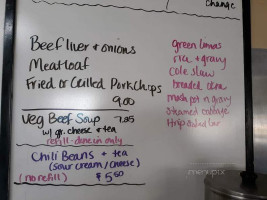 change
Beef liver + onions
Meatloaf
Fried or Grilled Pork Chips
9.00
Veg Beef Soup 7.85
w/ gr. cheese + tea
refill - dine in only
Chili Beans + tea
(sour cream / cheese)
(no refill) $5.50
green beans
rice + gravy
Cole slaw
breaded okra
mash pot n gravy
steamed cabbage